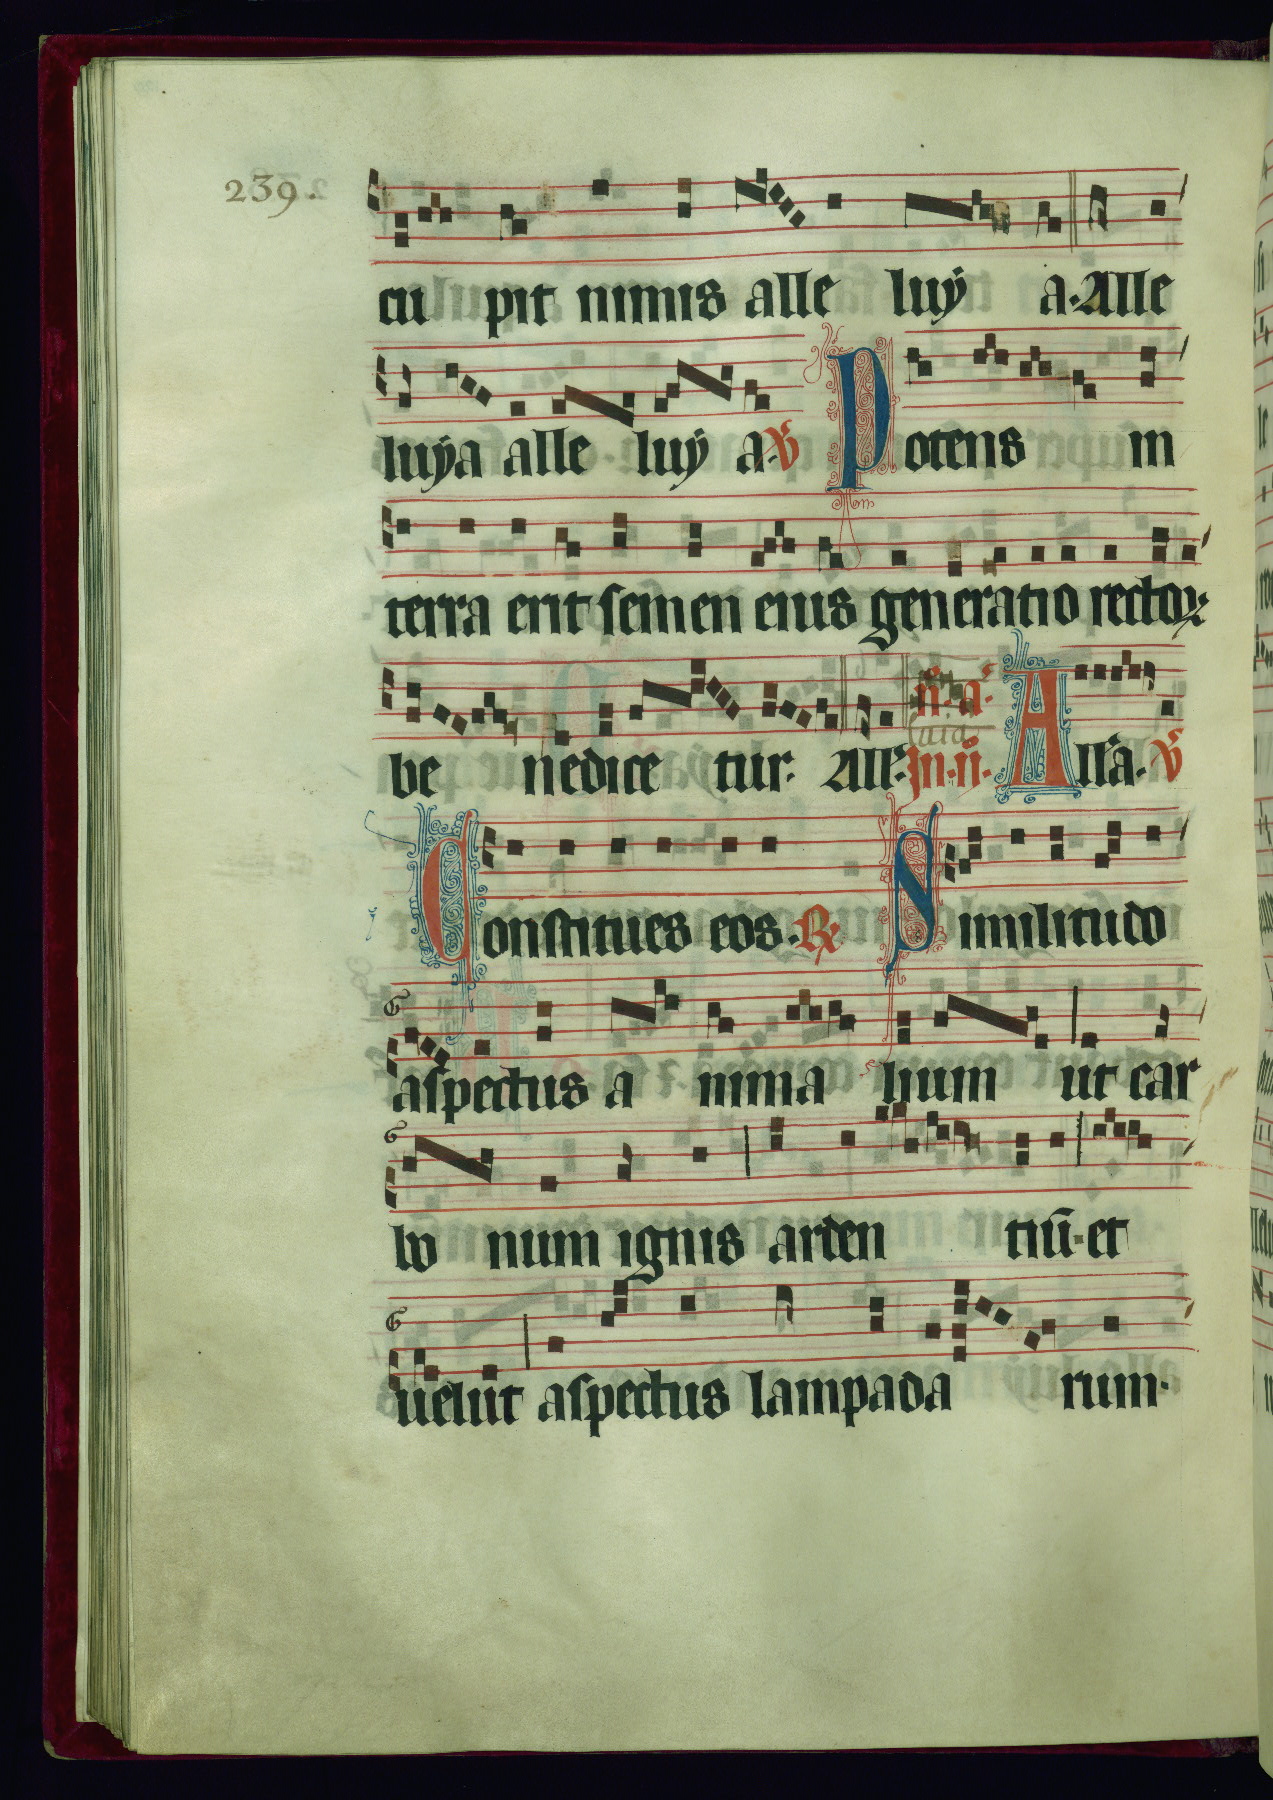 239.
cu pit nimis alle luÿ a. Alle
luÿa alle luÿ a. ℣ Potens in
terra erit semen eius generatio rectoꝝ
be nedice tur. All'. In .ii. n̄. a. Alla. ℣
Constitues eos. ℟ Similitudo
aspectus a nima lium ut car
bo num ignis arden tiū. et
uelut aspectus lampada rum.